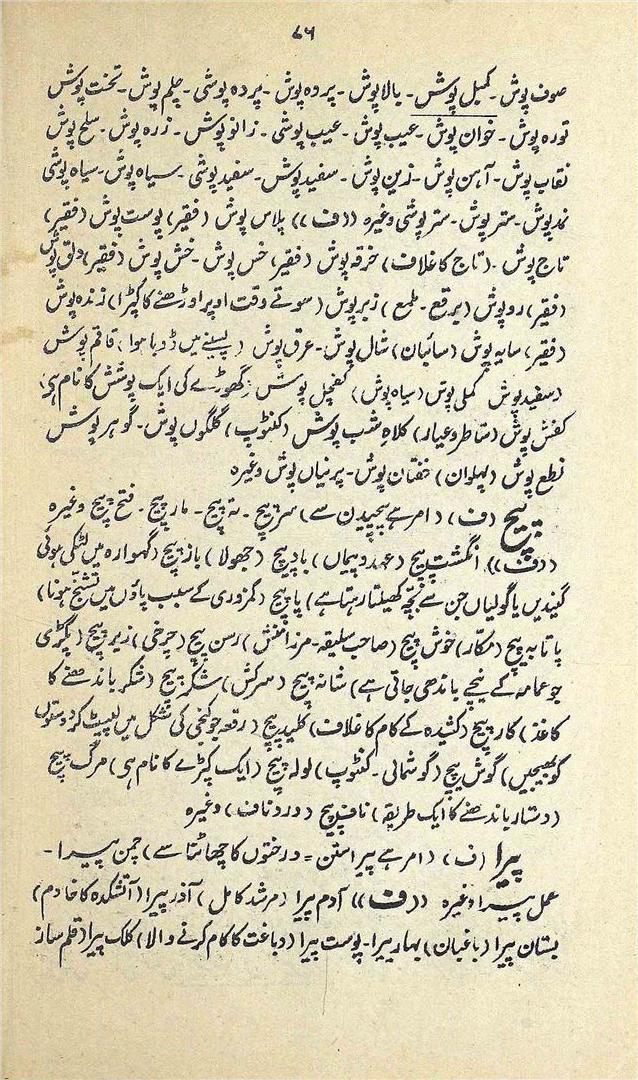 ۸۶
صوف پوش۔ کمبل پوش۔ بالاپوش۔ پردہ پوش۔ پردہ پوشی۔ چلم پوش۔ تخت پوش
تورہ پوش۔ خوان پوش۔ عیب پوش۔ عیب پوشی۔ زانو پوش۔ زرہ پوش۔ سلح پوش
نقاب پوش۔ آہن پوش۔ زین پوش۔ سفید پوش۔ سفید پوشی۔ سیاہ پوش۔ سیاہ پوشی
نمد پوش۔ ستر پوش۔ ستر پوشی وغیرہ ((ف)) پلاس پوش (فقیر) پوست پوش (فقیر)
تاج پوش۔ (تاج کا غلاف) خرقہ پوش (فقیر) خس پوش۔ خش پوش (فقیر) دلق پوش
(فقیر) رو پوش (برقع۔ طمع) زبر پوش (سوتے وقت اوپر اوڑھنے کا کپڑا) ژندہ پوش
(فقیر) سایہ پوش (سائبان) شال پوش۔ عرق پوش (پسینے میں ڈوبا ہوا) قاقم پوش
(سفید پوش کملی پوش (سیاہ پوش) پوش (گھوڑے کی ایک پوشش کا نام ہی)
کفش پوش (شاطر و عیار) کلاہ شب پوش (کنٹوپ) گلگوں پوش۔ گوہر پوش
نطع پوش (پہلوان) خفتان پوش۔ پرنیاں پوش وغیرہ
پیچ (ف) (امر ہے پیچیدن سے) سر پیچ۔ تہ پیچ۔ مار پیچ۔ فتح پیچ وغیرہ
((ف)) انگشت پیچ (عہد و پیماں) باد پیچ (جھولا) باز پیچ (گہوارہ میں لٹکی ہوئی
گیندیں یا گولیاں جن سے بچہ کھیلتا رہتا ہے) پا پیچ (کمزوری کے سبب پاؤں میں تشنج ہونا)
پا تابہ پیچ (مکّار) خوش پیچ (صاحب سلیقہ۔ مرزا منش) رسن پیچ (چرخی) زیر پیچ (پگڑی
جو عمامہ کے نیچے باندھی جاتی ہے) شانہ پیچ (سرکش) شکر پیچ (شکر باندھنے کا
کاغذ) کار پیچ (کشیدہ کے کام کا غلاف) کلید پیچ (رقعہ جو کنجی کی شکل میں لپیٹ کر دوستوں
کو بھیجیں) گوش پیچ (گوشمالی۔ کنٹوپ) لولہ پیچ (ایک کپڑے کا نام ہی) مرگ پیچ
(دستار باندھنے کا ایک طریقہ) ناف پیچ (درد ناف) وغیرہ
پیرا (ف) (امر ہے پیراستن = درختوں کا چھانٹنا سے) چمن پیرا۔
عمل پیرا وغیرہ ((ف)) آدم پیرا (مرشد کامل) آذر پیرا (آتشکدہ کا خادم)
بستان پیرا (باغبان) بہار پیرا۔ پوست پیرا (دباغت کا کام کرنے والا) کلک پیرا (قلم ساز